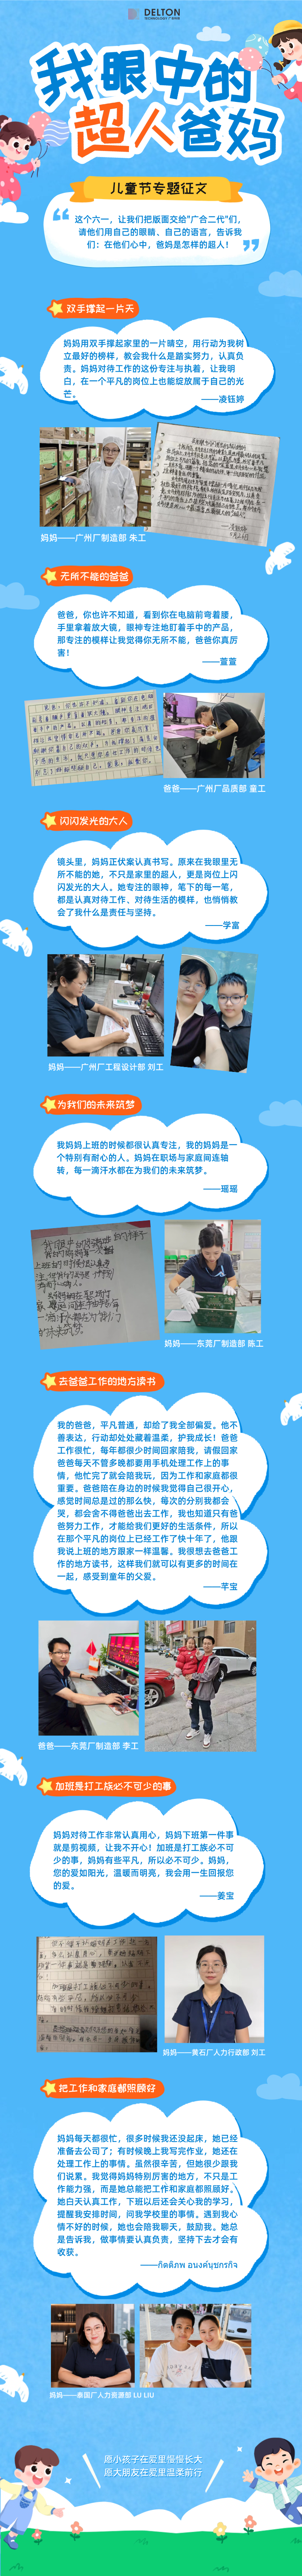 DELTON
我眼中的
超人爸妈
儿童节专题征文
这个六一，让我们把版面交给“广合二代”们，
请他们用自己的眼睛、自己的语言，告诉我
们：在他们心中，爸妈是怎样的超人！
双手撑起一片天
妈妈用双手撑起家里的一片晴空，用行动为我树
立最好的榜样，教会我什么是踏实努力，认真负
责。妈妈对待工作的这份专注与执着，让我明
白，在一个平凡的岗位上也能绽放属于自己的光
芒。
——凌钰婷
妈妈——广州厂制造部 朱工
无所不能的爸爸
爸爸，你也许不知道，看到你在电脑前弯着腰，
手里拿着放大镜，眼神专注地盯着手中的产品，
那专注的模样让我觉得你无所不能，爸爸你真厉
害！
——萱萱
爸爸——广州厂品质部 童工
闪闪发光的大人
镜头里，妈妈正伏案认真书写。原来在我眼里无
所不能的她，不只是家里的超人，更是岗位上闪
闪发光的大人。她专注的眼神，笔下的每一笔，
都是认真对待工作、对待生活的模样，也悄悄教
会了我什么是责任与坚持。
——学富
妈妈——广州厂工程设计部 刘工
为我们的未来筑梦
我妈妈上班的时候都很认真专注，我的妈妈是一
个特别有耐心的人。妈妈在职场与家庭间连轴
转，每一滴汗水都在为我们的未来筑梦。
——瑶瑶
妈妈——东莞厂制造部 陈工
去爸爸工作的地方读书
我的爸爸，平凡普通，却给了我全部偏爱。他不
善表达，行动却处处藏着温柔，护我成长！爸爸
工作很忙，每年都很少时间回家陪我，请假回家
爸爸每天不管多晚都要用手机处理工作上的事
情，他忙完了就会陪我玩，因为工作和家庭都很
重要。爸爸陪在身边的时候我觉得自己很开心，
感觉时间总是过的那么快，每次的分别我都会
哭，都会舍不得爸爸出去工作，我也知道只有爸
爸努力工作，才能给我们更好的生活条件，所以
在那个平凡的岗位上已经工作了快十年了，他跟
我说上班的地方跟家一样温馨。我很想去爸爸工
作的地方读书，这样我们就可以有更多的时间在
一起，感受到童年的父爱。
——芊宝
爸爸——东莞厂制造部 李工
加班是打工族必不可少的事
妈妈对待工作非常认真用心，妈妈下班第一件事
就是剪视频，让我不开心！加班是打工族必不可
少的事，妈妈有些平凡，所以必不可少。妈妈，
您的爱如阳光，温暖而明亮，我会用一生回报您
的爱。
——姜宝
妈妈——黄石厂人力行政部 刘工
把工作和家庭都照顾好
妈妈每天都很忙，很多时候我还没起床，她已经
准备去公司了；有时候晚上我写完作业，她还在
处理工作上的事情。虽然很辛苦，但她很少跟我
们说累。我觉得妈妈特别厉害的地方，不只是工
作能力强，而是她总能把工作和家庭都照顾好。
她白天认真工作，下班以后还会关心我的学习，
提醒我安排时间，问我学校里的事情。遇到我心
情不好的时候，她也会陪我聊天，鼓励我。她总
是告诉我，做事情要认真负责，坚持下去才会有
收获。
——กิตติภพ อนงค์นุชกรกิจ
妈妈——泰国厂人力资源部 LU LIU
愿小孩子在爱里慢慢长大
愿大朋友在爱里温柔前行